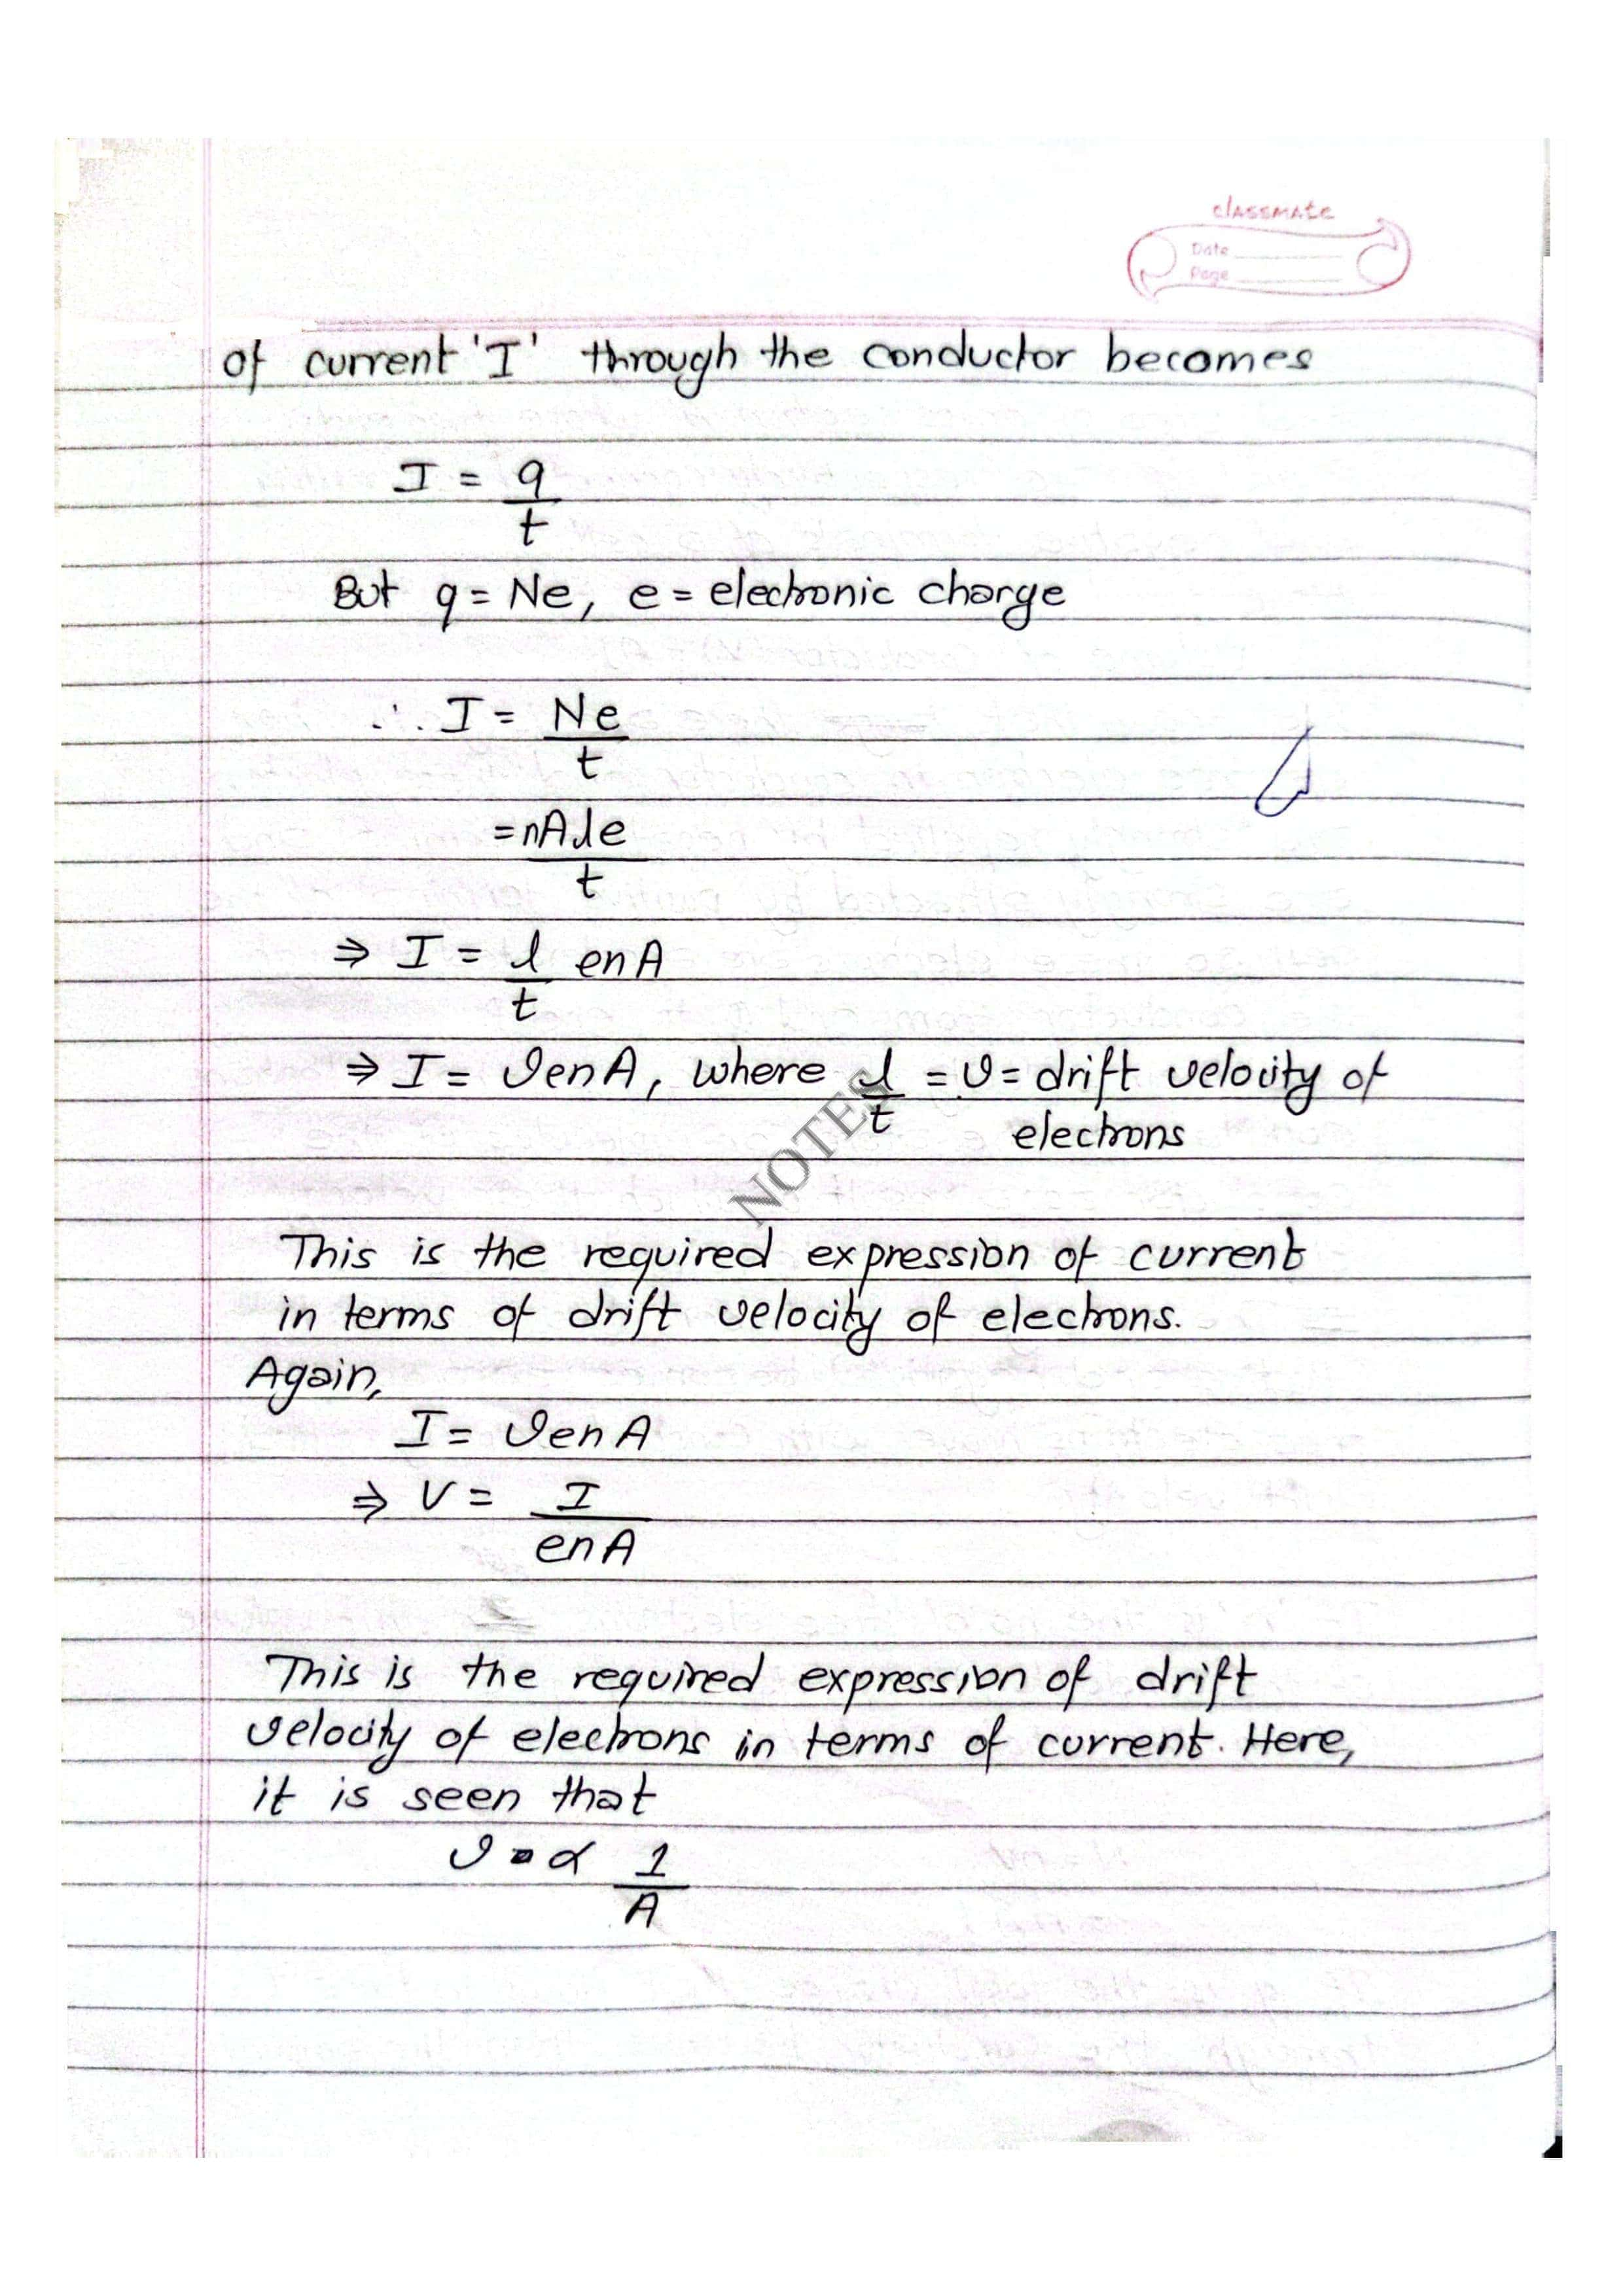 classmate
Date
Page
of current 'I' through the conductor becomes
I = q
t
But q = Ne, e = electronic charge
∴ I = Ne
t
= nAle
t
⇒ I = l enA
t
⇒ I = venA, where l = v = drift velocity of
t electrons
NOTES
This is the required expression of current
in terms of drift velocity of electrons.
Again,
I = venA
⇒ V = I
enA
This is the required expression of drift
velocity of electrons in terms of current. Here,
it is seen that
v ∝ 1
A